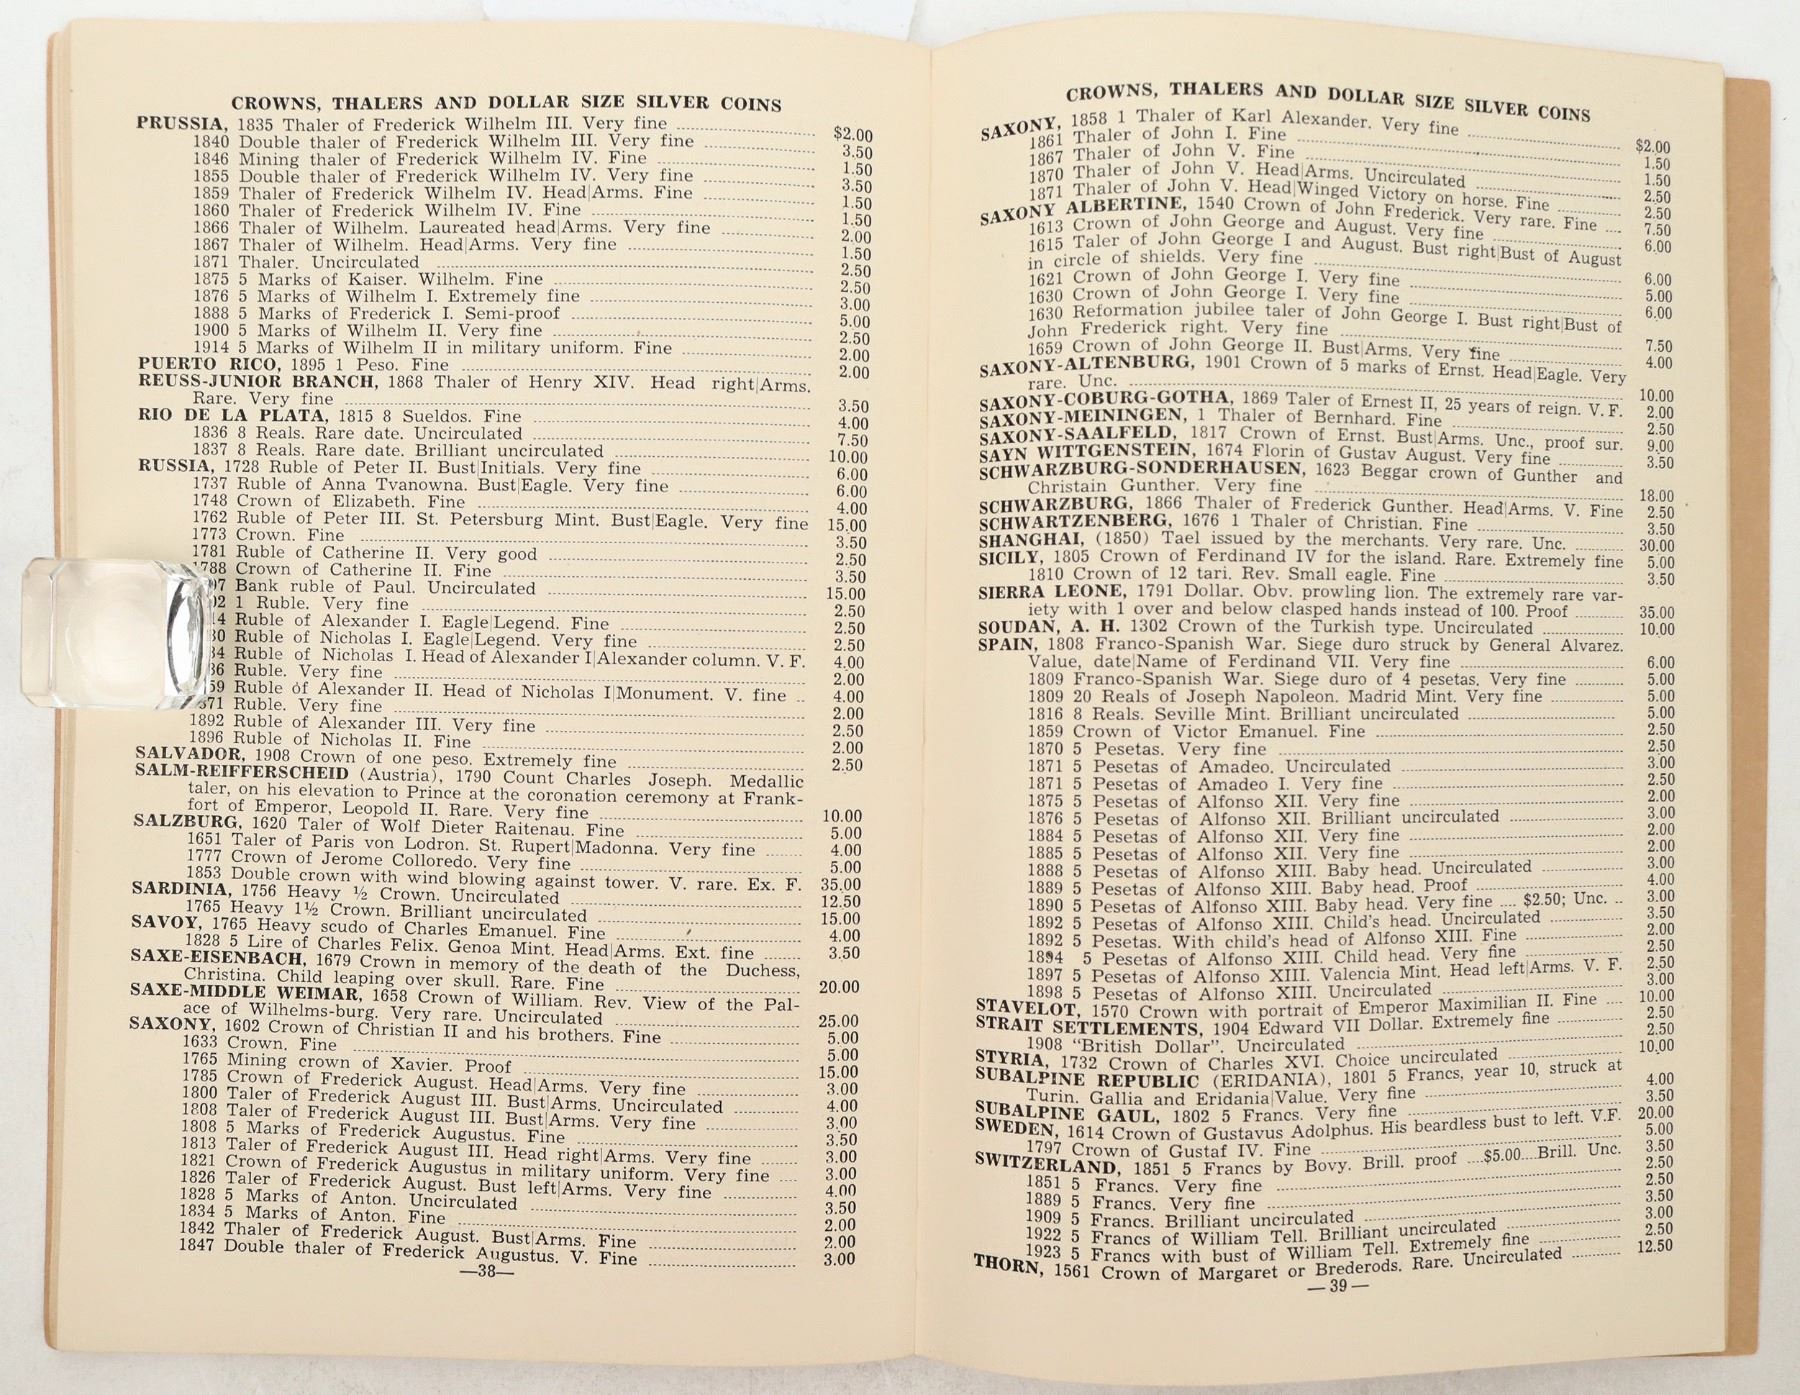 CROWNS, THALERS AND DOLLAR SIZE SILVER COINS
PRUSSIA, 1835 Thaler of Frederick Wilhelm III. Very fine $2.00
1840 Double thaler of Frederick Wilhelm III. Very fine 3.50
1846 Mining thaler of Frederick Wilhelm IV. Fine 1.50
1855 Double thaler of Frederick Wilhelm IV. Very fine 3.50
1859 Thaler of Frederick Wilhelm IV. Head|Arms. Fine 1.50
1860 Thaler of Frederick Wilhelm IV. Fine 1.50
1866 Thaler of Wilhelm. Laureated head|Arms. Very fine 2.00
1867 Thaler of Wilhelm. Head|Arms. Very fine 1.50
1871 Thaler. Uncirculated 2.50
1875 5 Marks of Kaiser. Wilhelm. Fine 2.50
1876 5 Marks of Wilhelm I. Extremely fine 3.00
1888 5 Marks of Frederick I. Semi-proof 5.00
1900 5 Marks of Wilhelm II. Very fine 2.50
1914 5 Marks of Wilhelm II in military uniform. Fine 2.00
PUERTO RICO, 1895 1 Peso. Fine 2.00
REUSS-JUNIOR BRANCH, 1868 Thaler of Henry XIV. Head right|Arms.
Rare. Very fine 3.50
RIO DE LA PLATA, 1815 8 Sueldos. Fine 4.00
1836 8 Reals. Rare date. Uncirculated 7.50
1837 8 Reals. Rare date. Brilliant uncirculated 10.00
RUSSIA, 1728 Ruble of Peter II. Bust|Initials. Very fine 6.00
1737 Ruble of Anna Tvanowna. Bust|Eagle. Very fine 6.00
1748 Crown of Elizabeth. Fine 4.00
1762 Ruble of Peter III. St. Petersburg Mint. Bust|Eagle. Very fine 15.00
1773 Crown. Fine 3.50
1781 Ruble of Catherine II. Very good 2.50
1788 Crown of Catherine II. Fine 3.50
97 Bank ruble of Paul. Uncirculated 15.00
02 1 Ruble. Very fine 2.50
14 Ruble of Alexander I. Eagle|Legend. Fine 2.50
30 Ruble of Nicholas I. Eagle|Legend. Very fine 2.50
34 Ruble of Nicholas I. Head of Alexander I|Alexander column. V. F. 4.00
36 Ruble. Very fine 2.00
59 Ruble of Alexander II. Head of Nicholas I|Monument. V. fine 4.00
871 Ruble. Very fine 2.00
1892 Ruble of Alexander III. Very fine 2.50
1896 Ruble of Nicholas II. Fine 2.00
SALVADOR, 1908 Crown of one peso. Extremely fine 2.50
SALM-REIFFERSCHEID (Austria), 1790 Count Charles Joseph. Medallic
taler, on his elevation to Prince at the coronation ceremony at Frank-
fort of Emperor, Leopold II. Rare. Very fine 10.00
SALZBURG, 1620 Taler of Wolf Dieter Raitenau. Fine 5.00
1651 Taler of Paris von Lodron. St. Rupert|Madonna. Very fine 4.00
1777 Crown of Jerome Colloredo. Very fine 5.00
1853 Double crown with wind blowing against tower. V. rare. Ex. F. 35.00
SARDINIA, 1756 Heavy ½ Crown. Uncirculated 12.50
1765 Heavy 1½ Crown. Brilliant uncirculated 15.00
SAVOY, 1765 Heavy scudo of Charles Emanuel. Fine 4.00
1828 5 Lire of Charles Felix. Genoa Mint. Head|Arms. Ext. fine 3.50
SAXE-EISENBACH, 1679 Crown in memory of the death of the Duchess,
Christina. Child leaping over skull. Rare. Fine 20.00
SAXE-MIDDLE WEIMAR, 1658 Crown of William. Rev. View of the Pal-
ace of Wilhelms-burg. Very rare. Uncirculated 25.00
SAXONY, 1602 Crown of Christian II and his brothers. Fine 5.00
1633 Crown. Fine 5.00
1765 Mining crown of Xavier. Proof 15.00
1785 Crown of Frederick August. Head|Arms. Very fine 3.00
1800 Taler of Frederick August III. Bust|Arms. Uncirculated 4.00
1808 Taler of Frederick August III. Bust|Arms. Very fine 3.00
1808 5 Marks of Frederick Augustus. Fine 3.50
1813 Taler of Frederick August III. Head right|Arms. Very fine 3.00
1821 Crown of Frederick Augustus in military uniform. Very fine 3.00
1826 Taler of Frederick August. Bust left|Arms. Very fine 4.00
1828 5 Marks of Anton. Uncirculated 3.50
1834 5 Marks of Anton. Fine 2.00
1842 Thaler of Frederick August. Bust|Arms. Fine 2.00
1847 Double thaler of Frederick Augustus. V. Fine 3.00
—38—
CROWNS, THALERS AND DOLLAR SIZE SILVER COINS
SAXONY, 1858 1 Thaler of Karl Alexander. Very fine $2.00
1861 Thaler of John I. Fine 1.50
1867 Thaler of John V. Fine 1.50
1870 Thaler of John V. Head|Arms. Uncirculated 2.50
1871 Thaler of John V. Head|Winged Victory on horse. Fine 2.50
SAXONY ALBERTINE, 1540 Crown of John Frederick. Very rare. Fine 7.50
1613 Crown of John George and August. Very fine 6.00
1615 Taler of John George I and August. Bust right|Bust of August
in circle of shields. Very fine 6.00
1621 Crown of John George I. Very fine 5.00
1630 Crown of John George I. Very fine 6.00
1630 Reformation jubilee taler of John George I. Bust right|Bust of
John Frederick right. Very fine 7.50
1659 Crown of John George II. Bust|Arms. Very fine 4.00
SAXONY-ALTENBURG, 1901 Crown of 5 marks of Ernst. Head|Eagle. Very
rare. Unc. 10.00
SAXONY-COBURG-GOTHA, 1869 Taler of Ernest II, 25 years of reign. V. F. 2.00
SAXONY-MEININGEN, 1 Thaler of Bernhard. Fine 2.50
SAXONY-SAALFELD, 1817 Crown of Ernst. Bust|Arms. Unc., proof sur. 9.00
SAYN WITTGENSTEIN, 1674 Florin of Gustav August. Very fine 3.50
SCHWARZBURG-SONDERHAUSEN, 1623 Beggar crown of Gunther and
Christain Gunther. Very fine 18.00
SCHWARZBURG, 1866 Thaler of Frederick Gunther. Head|Arms. V. Fine 2.50
SCHWARTZENBERG, 1676 1 Thaler of Christian. Fine 3.50
SHANGHAI, (1850) Tael issued by the merchants. Very rare. Unc. 30.00
SICILY, 1805 Crown of Ferdinand IV for the island. Rare. Extremely fine 5.00
1810 Crown of 12 tari. Rev. Small eagle. Fine 3.50
SIERRA LEONE, 1791 Dollar. Obv. prowling lion. The extremely rare var-
iety with 1 over and below clasped hands instead of 100. Proof 35.00
SOUDAN, A. H. 1302 Crown of the Turkish type. Uncirculated 10.00
SPAIN, 1808 Franco-Spanish War. Siege duro struck by General Alvarez.
Value, date|Name of Ferdinand VII. Very fine 6.00
1809 Franco-Spanish War. Siege duro of 4 pesetas. Very fine 5.00
1809 20 Reals of Joseph Napoleon. Madrid Mint. Very fine 5.00
1816 8 Reals. Seville Mint. Brilliant uncirculated 5.00
1859 Crown of Victor Emanuel. Fine 2.50
1870 5 Pesetas. Very fine 2.50
1871 5 Pesetas of Amadeo. Uncirculated 3.00
1871 5 Pesetas of Amadeo I. Very fine 2.50
1875 5 Pesetas of Alfonso XII. Very fine 2.00
1876 5 Pesetas of Alfonso XII. Brilliant uncirculated 3.00
1884 5 Pesetas of Alfonso XII. Very fine 2.00
1885 5 Pesetas of Alfonso XII. Very fine 2.00
1888 5 Pesetas of Alfonso XIII. Baby head. Uncirculated 3.00
1889 5 Pesetas of Alfonso XIII. Baby head. Proof 4.00
1890 5 Pesetas of Alfonso XIII. Baby head. Very fine .... $2.50; Unc. 3.00
1892 5 Pesetas of Alfonso XIII. Child's head. Uncirculated 3.50
1892 5 Pesetas. With child's head of Alfonso XIII. Fine 2.00
1894 5 Pesetas of Alfonso XIII. Child head. Very fine 2.50
1897 5 Pesetas of Alfonso XIII. Valencia Mint. Head left|Arms. V. F. 2.50
1898 5 Pesetas of Alfonso XIII. Uncirculated 3.00
STAVELOT, 1570 Crown with portrait of Emperor Maximilian II. Fine 10.00
STRAIT SETTLEMENTS, 1904 Edward VII Dollar. Extremely fine 2.50
1908 "British Dollar". Uncirculated 2.50
STYRIA, 1732 Crown of Charles XVI. Choice uncirculated 10.00
SUBALPINE REPUBLIC (ERIDANIA), 1801 5 Francs, year 10, struck at
Turin. Gallia and Eridania|Value. Very fine 4.00
SUBALPINE GAUL, 1802 5 Francs. Very fine 3.50
SWEDEN, 1614 Crown of Gustavus Adolphus. His beardless bust to left. V.F. 20.00
1797 Crown of Gustaf IV. Fine 5.00
SWITZERLAND, 1851 5 Francs by Bovy. Brill. proof ....$5.00....Brill. Unc. 3.50
1851 5 Francs. Very fine 2.50
1889 5 Francs. Very fine 2.50
1909 5 Francs. Brilliant uncirculated 3.50
1922 5 Francs of William Tell. Brilliant uncirculated 3.00
1923 5 Francs with bust of William Tell. Extremely fine 2.50
THORN, 1561 Crown of Margaret or Brederods. Rare. Uncirculated 12.50
—39—